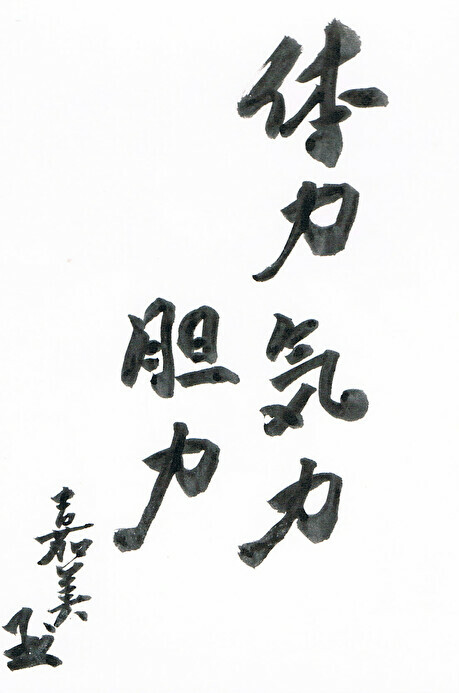 体力気力
胆力
嘉美